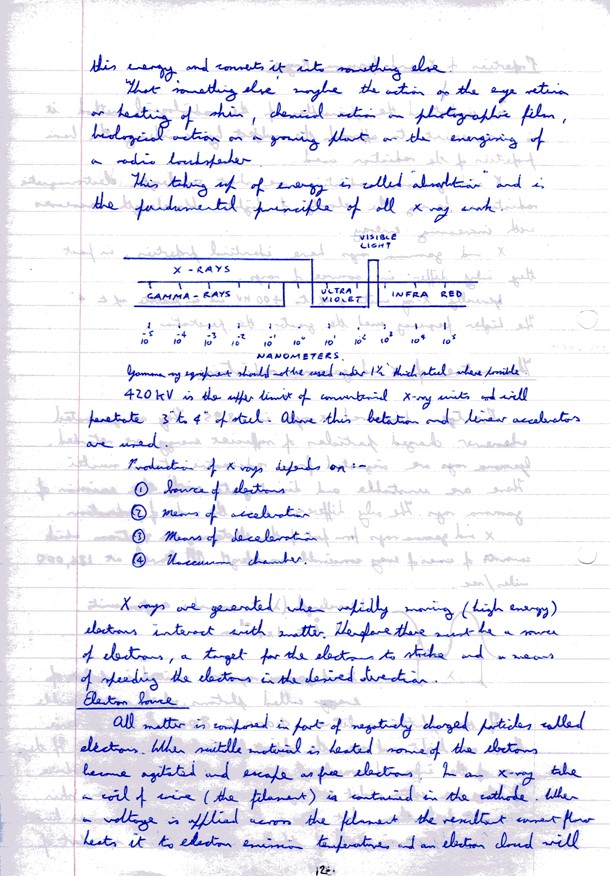 this energy and converts it into something else.
"That" something else maybe the action on the eye retina
or heating of skin, chemical action on photographic film,
biological action on a growing plant or the energising of
a radio loudspeaker.
This taking up of energy is called "absorbtion" and is
the fundumental principle of all x ray work.
VISIBLE
LIGHT
X-RAYS
GAMMA-RAYS
ULTRA
VIOLET
INFRA RED
10⁻⁵ 10⁻⁴ 10⁻³ 10⁻² 10⁻¹ 10⁰ 10¹ 10² 10³ 10⁴ 10⁵
NANOMETERS.
Gamma ray equipment should not be used under 1½" thick steel where possible
420KV is the upper limit of conventional X-ray units and will
penetrate 3" to 4" of steel. Above this betatron and linear accelerators
are used.
Production of X rays depends on :-
① Source of electrons
② Means of acceleration
③ Means of deceleration
④ Vaccuum chamber.
X rays are generated when rapidly moving (high energy)
electrons interact with matter. Therefore there must be a source
of electrons, a target for the electrons to strike and a means
of speeding the electrons in the desired direction.
Electron Source
All matter is composed in part of negativly charged particles called
electrons. When suitble material is heated some of the electrons
become agitated and escape as free electrons. In an x-ray tube
a coil of wire (the filament) is contained in the cathode. When
a voltage is applied across the filament the resultant current flow
heats it to electron emission temperatures and an electron cloud will